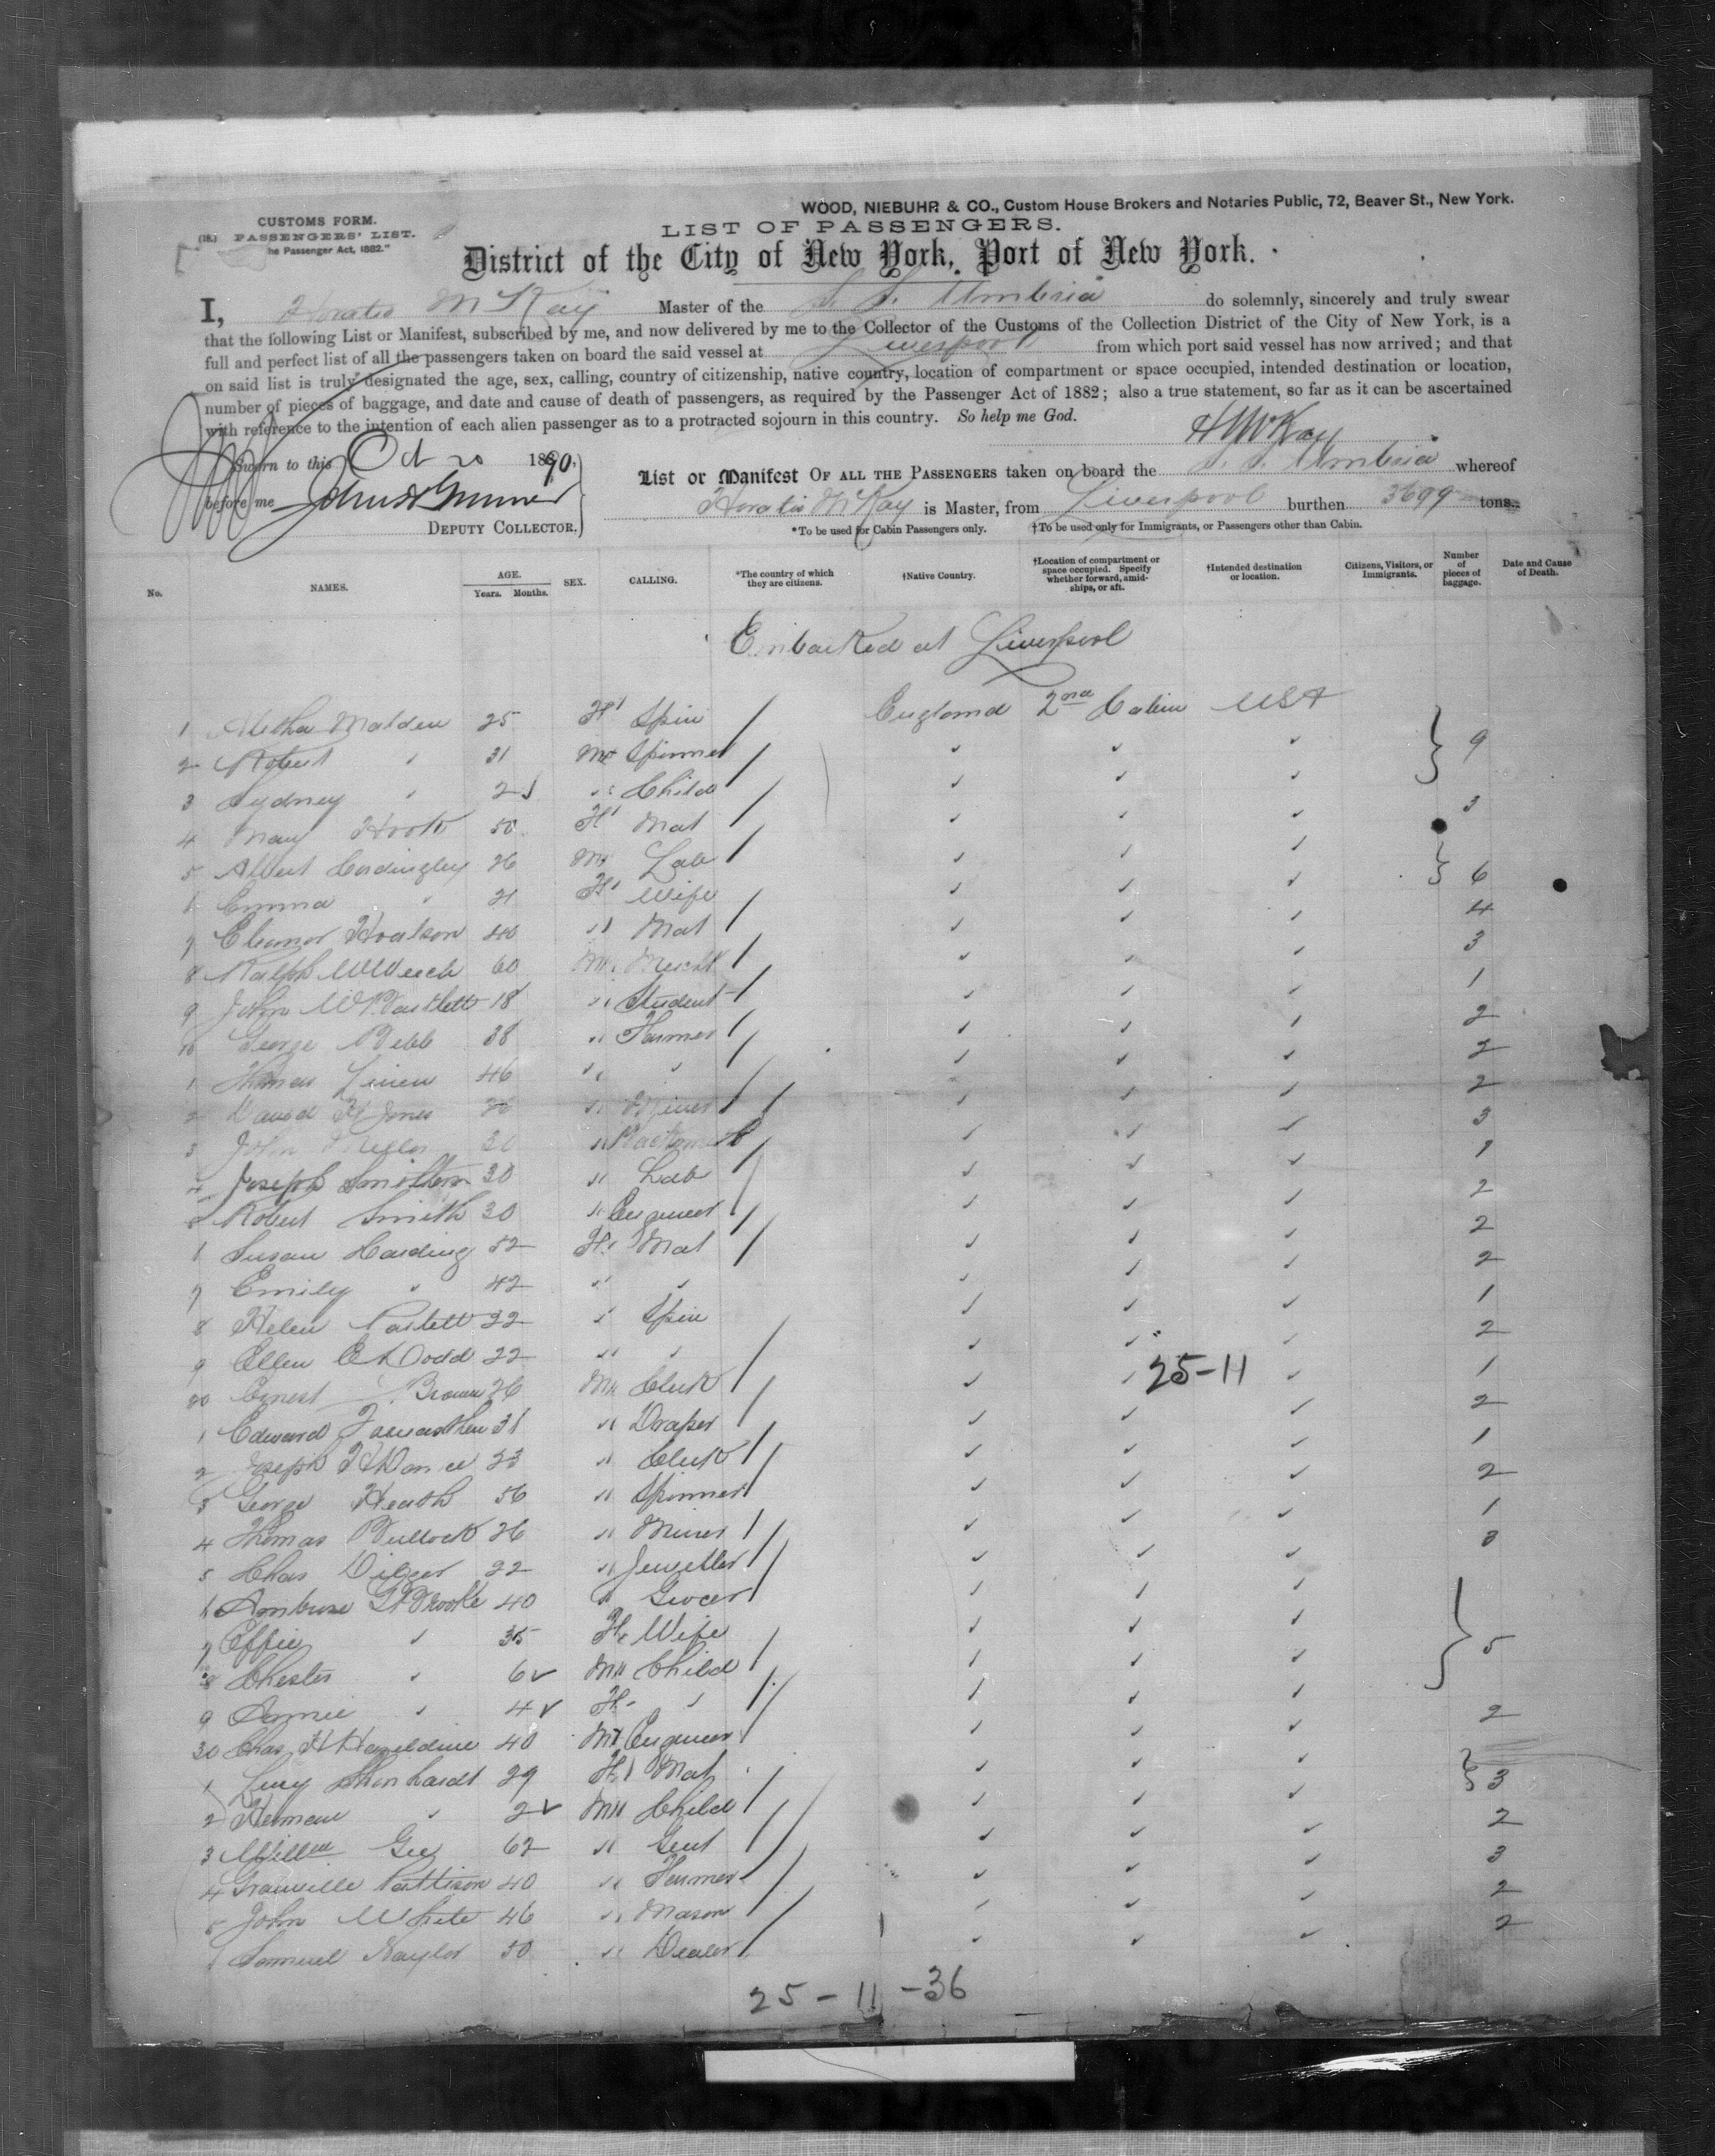 WOOD, NIEBUHR & CO., Custom House Brokers and Notaries Public, 72, Beaver St., New York.
CUSTOMS FORM.
(18.) PASSENGERS' LIST.
he Passenger Act, 1882."
LIST OF PASSENGERS.
District of the City of New York, Port of New York.
I, Horatio McKay Master of the S. S. Umbria do solemnly, sincerely and truly swear
that the following List or Manifest, subscribed by me, and now delivered by me to the Collector of the Customs of the Collection District of the City of New York, is a
full and perfect list of all the passengers taken on board the said vessel at Liverpool from which port said vessel has now arrived; and that
on said list is truly designated the age, sex, calling, country of citizenship, native country, location of compartment or space occupied, intended destination or location,
number of pieces of baggage, and date and cause of death of passengers, as required by the Passenger Act of 1882; also a true statement, so far as it can be ascertained
with reference to the intention of each alien passenger as to a protracted sojourn in this country. So help me God.
H McKay
Sworn to this Oct 20 1890.
before me
DEPUTY COLLECTOR.
List or Manifest OF ALL THE PASSENGERS taken on board the S. S. Umbria whereof
Horatio McKay is Master, from Liverpool burthen 3699 tons.
*To be used for Cabin Passengers only. †To be used only for Immigrants, or Passengers other than Cabin.
No. NAMES. AGE. Years. Months. SEX. CALLING. *The country of which they are citizens. †Native Country. †Location of compartment or space occupied. Specify whether forward, amidships, or aft. †Intended destination or location. Citizens, Visitors, or Immigrants. Number of pieces of baggage. Date and Cause of Death.
Embarked at Liverpool
1 Malden 25 F Spin England 2nd Cabin USA
2 Robert " 31 M Spinner 9
3 Sydney " 2 " Child
4 Mary Hook 50 F Mat 3
5 Albert Cordingley 26 M Lab
6 Emma " 21 F Wife 6
7 Eleanor Hoalson 40 " Mat 4
8 Ralph W Veech 60 M Mercht 3
9 John W Bartlett 18 " Student 1
10 George Webb 38 " Farmer 2
1 Thomas Linen 46 " " 2
2 David H Jones 26 " Miner 2
3 John 30 " Blacksmith 3
4 Joseph Smilton 30 " Lab 1
5 Robert Smith 30 " Engineer 2
6 Susan Harding 52 F Mat 2
7 Emily " 42 " " 2
8 Helen 22 " Spin 1
9 Ellen E Dodd 22 " " 2
20 Ernest Brown 26 M Clerk 25-11 1
1 Edward 31 " Draper 2
2 Joseph H Dance 23 " Clerk 1
3 George Heath 56 " Spinner 2
4 Thomas Bullock 26 " Miner 1
5 Chas Dilger 22 " Jeweller 3
6 Ambrose G Brooke 40 " Grocer
7 Effie " 35 F Wife 5
8 Chester " 6 M Child
9 Annie " 4 F "
30 Chas H Hazeldine 40 M Engineer 2
1 Lucy Shonhardt 29 F Mat 3
2 Herman " 2 M Child
3 Willm Gee 62 " Gent 2
4 Granville Pattison 40 " Farmer 3
5 John White 46 " Mason 2
6 Samuel Naylor 50 " Dealer 2
25-11-36